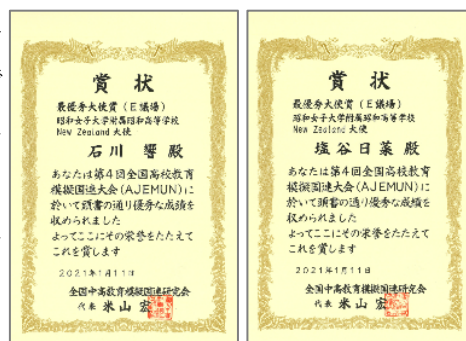 賞状
最優秀大使賞（E議場）
昭和女子大学附属昭和高等学校
New Zealand 大使
石川 響 殿
あなたは第4回全国高校教育
模擬国連大会(AJEMUN)に
於いて頭書の通り優秀な成績を
収められました
よってここにその栄誉をたたえて
これを賞します
2021年1月11日
全国中高教育模擬国連研究会
代表 米山 宏
賞状
最優秀大使賞（E議場）
昭和女子大学附属昭和高等学校
New Zealand 大使
塩谷日菜 殿
あなたは第4回全国高校教育
模擬国連大会(AJEMUN)に
於いて頭書の通り優秀な成績を
収められました
よってここにその栄誉をたたえて
これを賞します
2021年1月11日
全国中高教育模擬国連研究会
代表 米山 宏